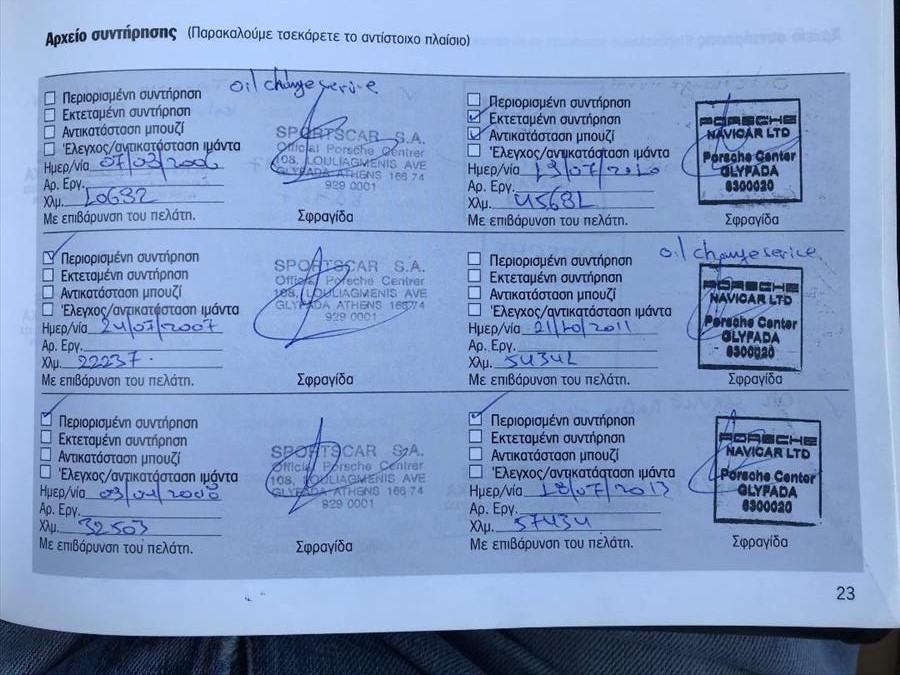 Αρχείο συντήρησης (Παρακαλούμε τσεκάρετε το αντίστοιχο πλαίσιο)
oil change service
Περιορισμένη συντήρηση
Εκτεταμένη συντήρηση
Αντικατάσταση μπουζί
Έλεγχος/αντικατάσταση ιμάντα
Ημερ/νία 07/03/2006
Αρ. Εργ.
Χλμ. 10682
Με επιβάρυνση του πελάτη.
SPORTSCAR S.A.
Official Porsche Centrer
108, LOULIAGMENIS AVE
GLYFADA ATHENS 166 74
929 0001
Σφραγίδα
Περιορισμένη συντήρηση
Εκτεταμένη συντήρηση
Αντικατάσταση μπουζί
Έλεγχος/αντικατάσταση ιμάντα
Ημερ/νία 24/07/2007
Αρ. Εργ.
Χλμ. 22237.
Με επιβάρυνση του πελάτη.
SPORTSCAR S.A.
Official Porsche Centrer
108, LOULIAGMENIS AVE
GLYFADA ATHENS 166 74
929 0001
Σφραγίδα
Περιορισμένη συντήρηση
Εκτεταμένη συντήρηση
Αντικατάσταση μπουζί
Έλεγχος/αντικατάσταση ιμάντα
Ημερ/νία 03/04/2008
Αρ. Εργ.
Χλμ. 32503
Με επιβάρυνση του πελάτη.
SPORTSCAR S.A.
Official Porsche Centrer
108, LOULIAGMENIS AVE
GLYFADA ATHENS 166 74
929 0001
Σφραγίδα
Περιορισμένη συντήρηση
Εκτεταμένη συντήρηση
Αντικατάσταση μπουζί
Έλεγχος/αντικατάσταση ιμάντα
Ημερ/νία 19/07/2010
Αρ. Εργ.
Χλμ.
Με επιβάρυνση του πελάτη.
PORSCHE
NAVICAR LTD
Porsche Center
GLYFADA
6300020
Σφραγίδα
oil change service
Περιορισμένη συντήρηση
Εκτεταμένη συντήρηση
Αντικατάσταση μπουζί
Έλεγχος/αντικατάσταση ιμάντα
Ημερ/νία 21/10/2011
Αρ. Εργ.
Χλμ.
Με επιβάρυνση του πελάτη.
PORSCHE
NAVICAR LTD
Porsche Center
GLYFADA
6300020
Σφραγίδα
Περιορισμένη συντήρηση
Εκτεταμένη συντήρηση
Αντικατάσταση μπουζί
Έλεγχος/αντικατάσταση ιμάντα
Ημερ/νία 18/07/2013
Αρ. Εργ.
Χλμ.
Με επιβάρυνση του πελάτη.
PORSCHE
NAVICAR LTD
Porsche Center
GLYFADA
6300020
Σφραγίδα
23